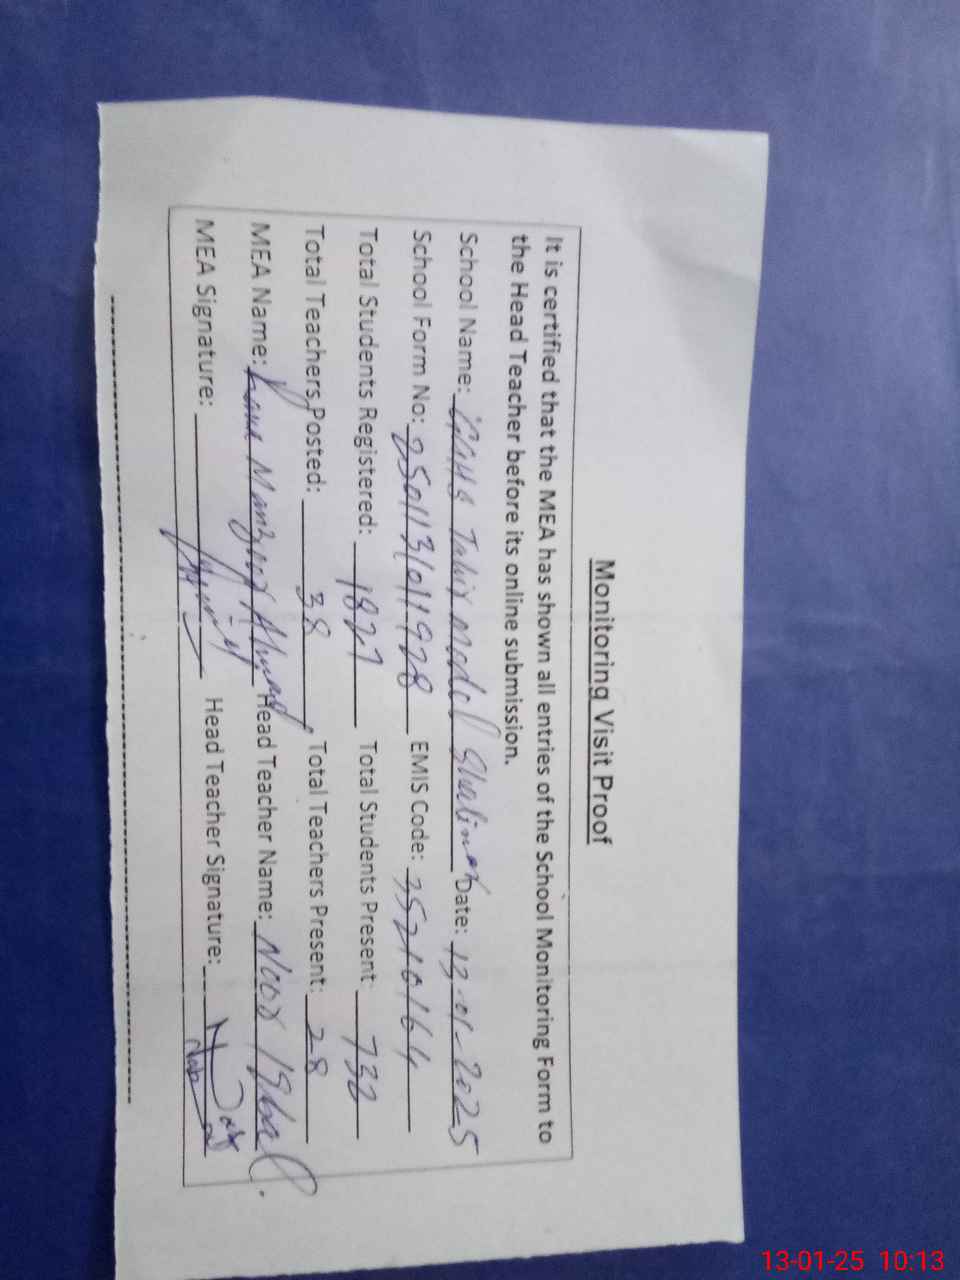 Monitoring Visit Proof
It is certified that the MEA has shown all entries of the School Monitoring Form to
the Head Teacher before its online submission.
School Name: Tahir model Shalimar Date: 13-01-2025
School Form No: 2501131011928 EMIS Code: 35210164
Total Students Registered: 1827 Total Students Present: 732
Total Teachers Posted: 38 Total Teachers Present: 28
MEA Name: Rana Manzoor Ahmad Head Teacher Name: Noor Iqbal
MEA Signature: Head Teacher Signature:
13-01-25 10:13